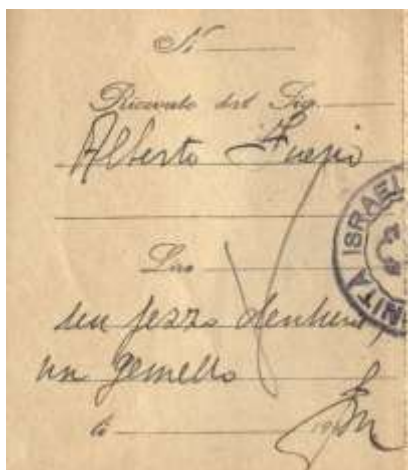 N.
Ricevuto dal Sig.
Alberto
Lire
un pezzo dentiera,
un gemello
li 19
NITÀ ISRAEL